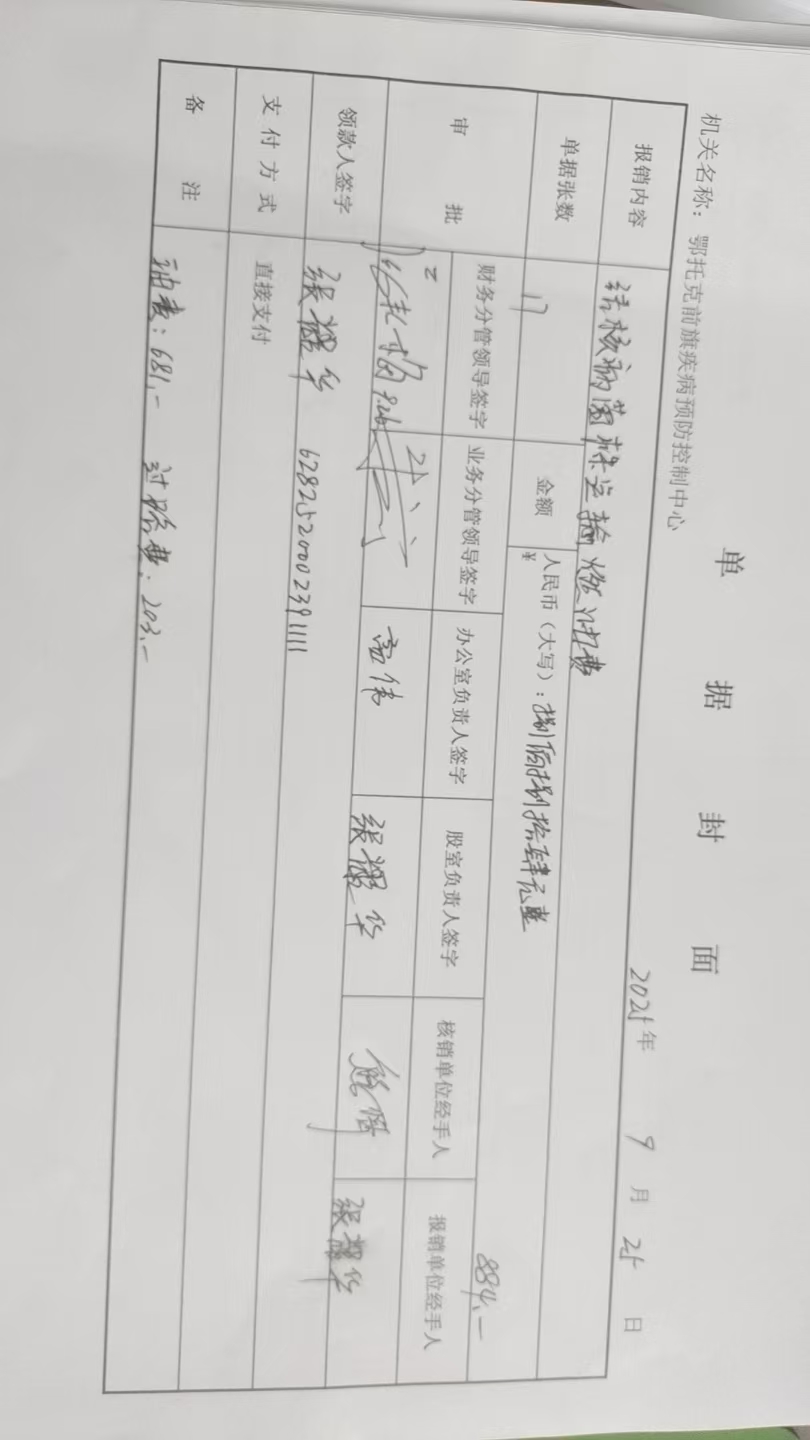 单据封面
机关名称：鄂托克前旗疾病预防控制中心 2025年9月25日
报销内容 结核病菌株运输燃油费
单据张数 17 金额 人民币（大写）：捌佰捌拾肆元整
¥ 884.-
审批 财务分管领导签字 业务分管领导签字 办公室负责人签字 股室负责人签字 核销单位经手人 报销单位经手人
领款人签字 6282520002391111
支付方式 直接支付
备注 油费：681.- 过路费：203.-